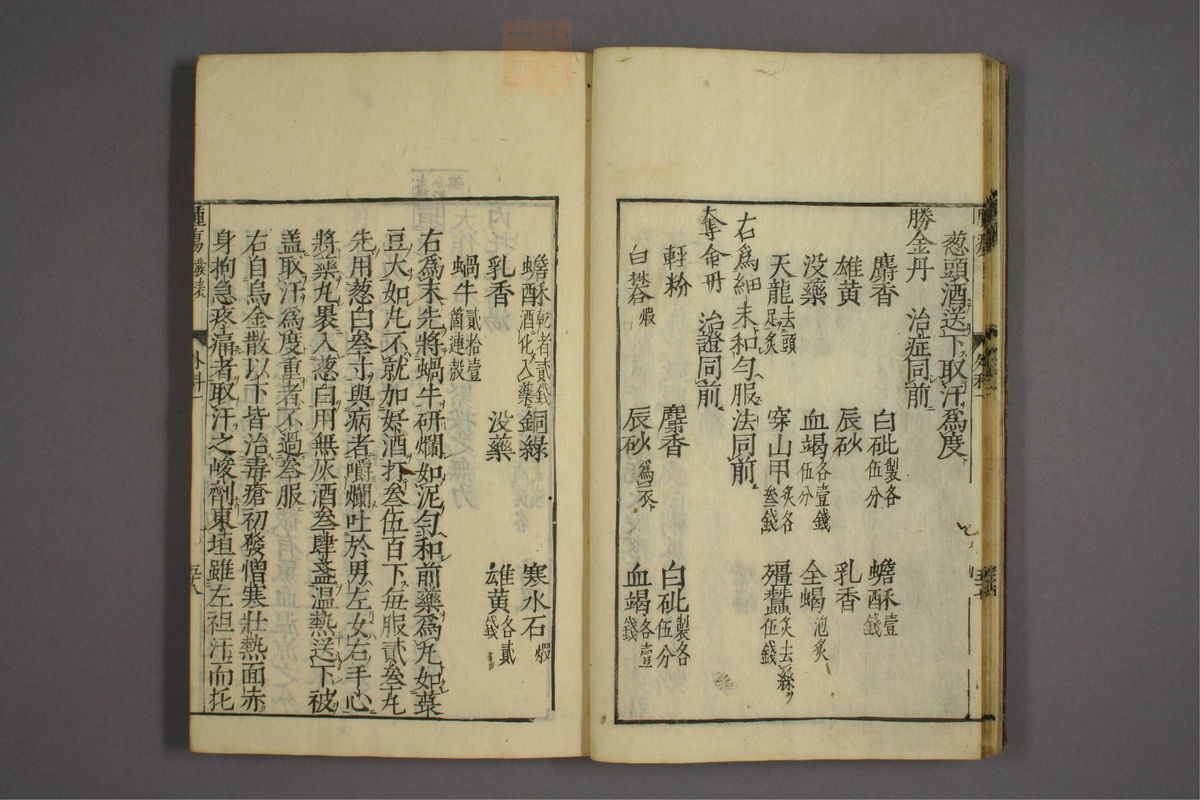 葱頭酒送下取汗爲度
勝金丹 治症同前
麝香 白砒製各伍分 蟾酥壹錢
雄黄 辰砂 乳香
没藥 血竭各壹錢伍分 全蝎泡炙
天龍去頭足炙 穿山甲炙各叁錢 殭蠶炙去絲伍錢
右爲細末和勻服法同前
奪命丹 治證同前
輕粉 麝香 白砒製各伍分
白礬煆 辰砂爲衣 血竭各壹錢
蟾酥乾者貳錢酒化入藥 銅綠 寒水石煆
乳香 没藥 雄黄各貳錢
蝸牛貳拾壹箇連殼
右爲末先將蝸牛研爛如泥勻和前藥爲丸如菉
豆大如丸不就加好酒打叁伍百下每服貳叁丸
先用葱白叁寸與病者嚼爛吐於男左女右手心
將藥丸裹入葱白用無灰酒叁肆盞温熱送下被
盖取汗爲度重者不過叁服
右自烏金散以下皆治毒瘡初發憎寒壯熱面赤
身拘急疼痛者取汗之峻劑東垣雖左袒汗而托
外科
五十八